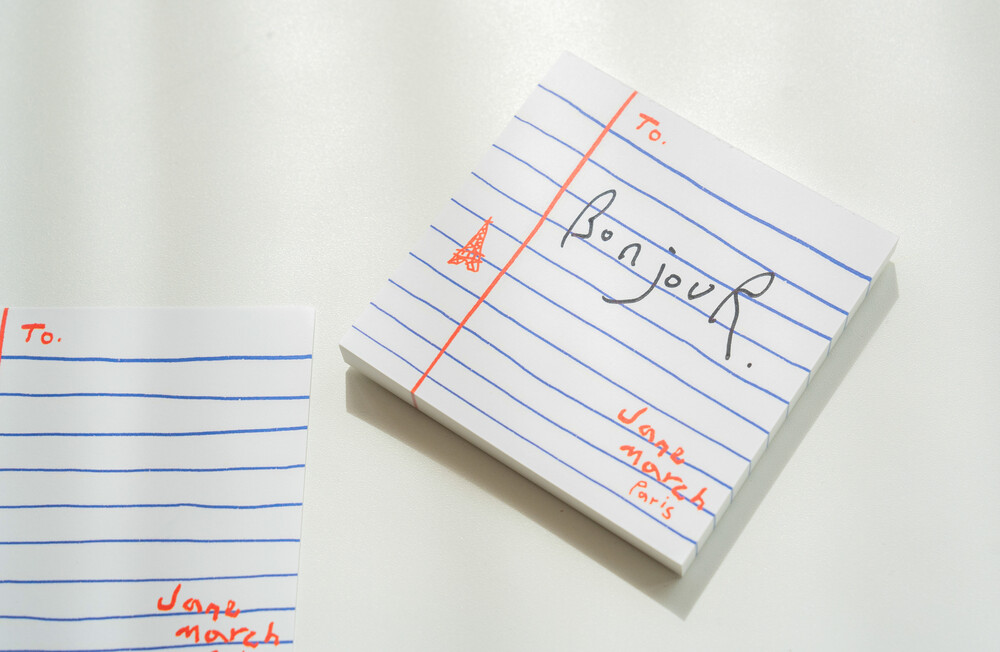 To.
BonjouR.
Jane
march
Paris
To.
Jane
march